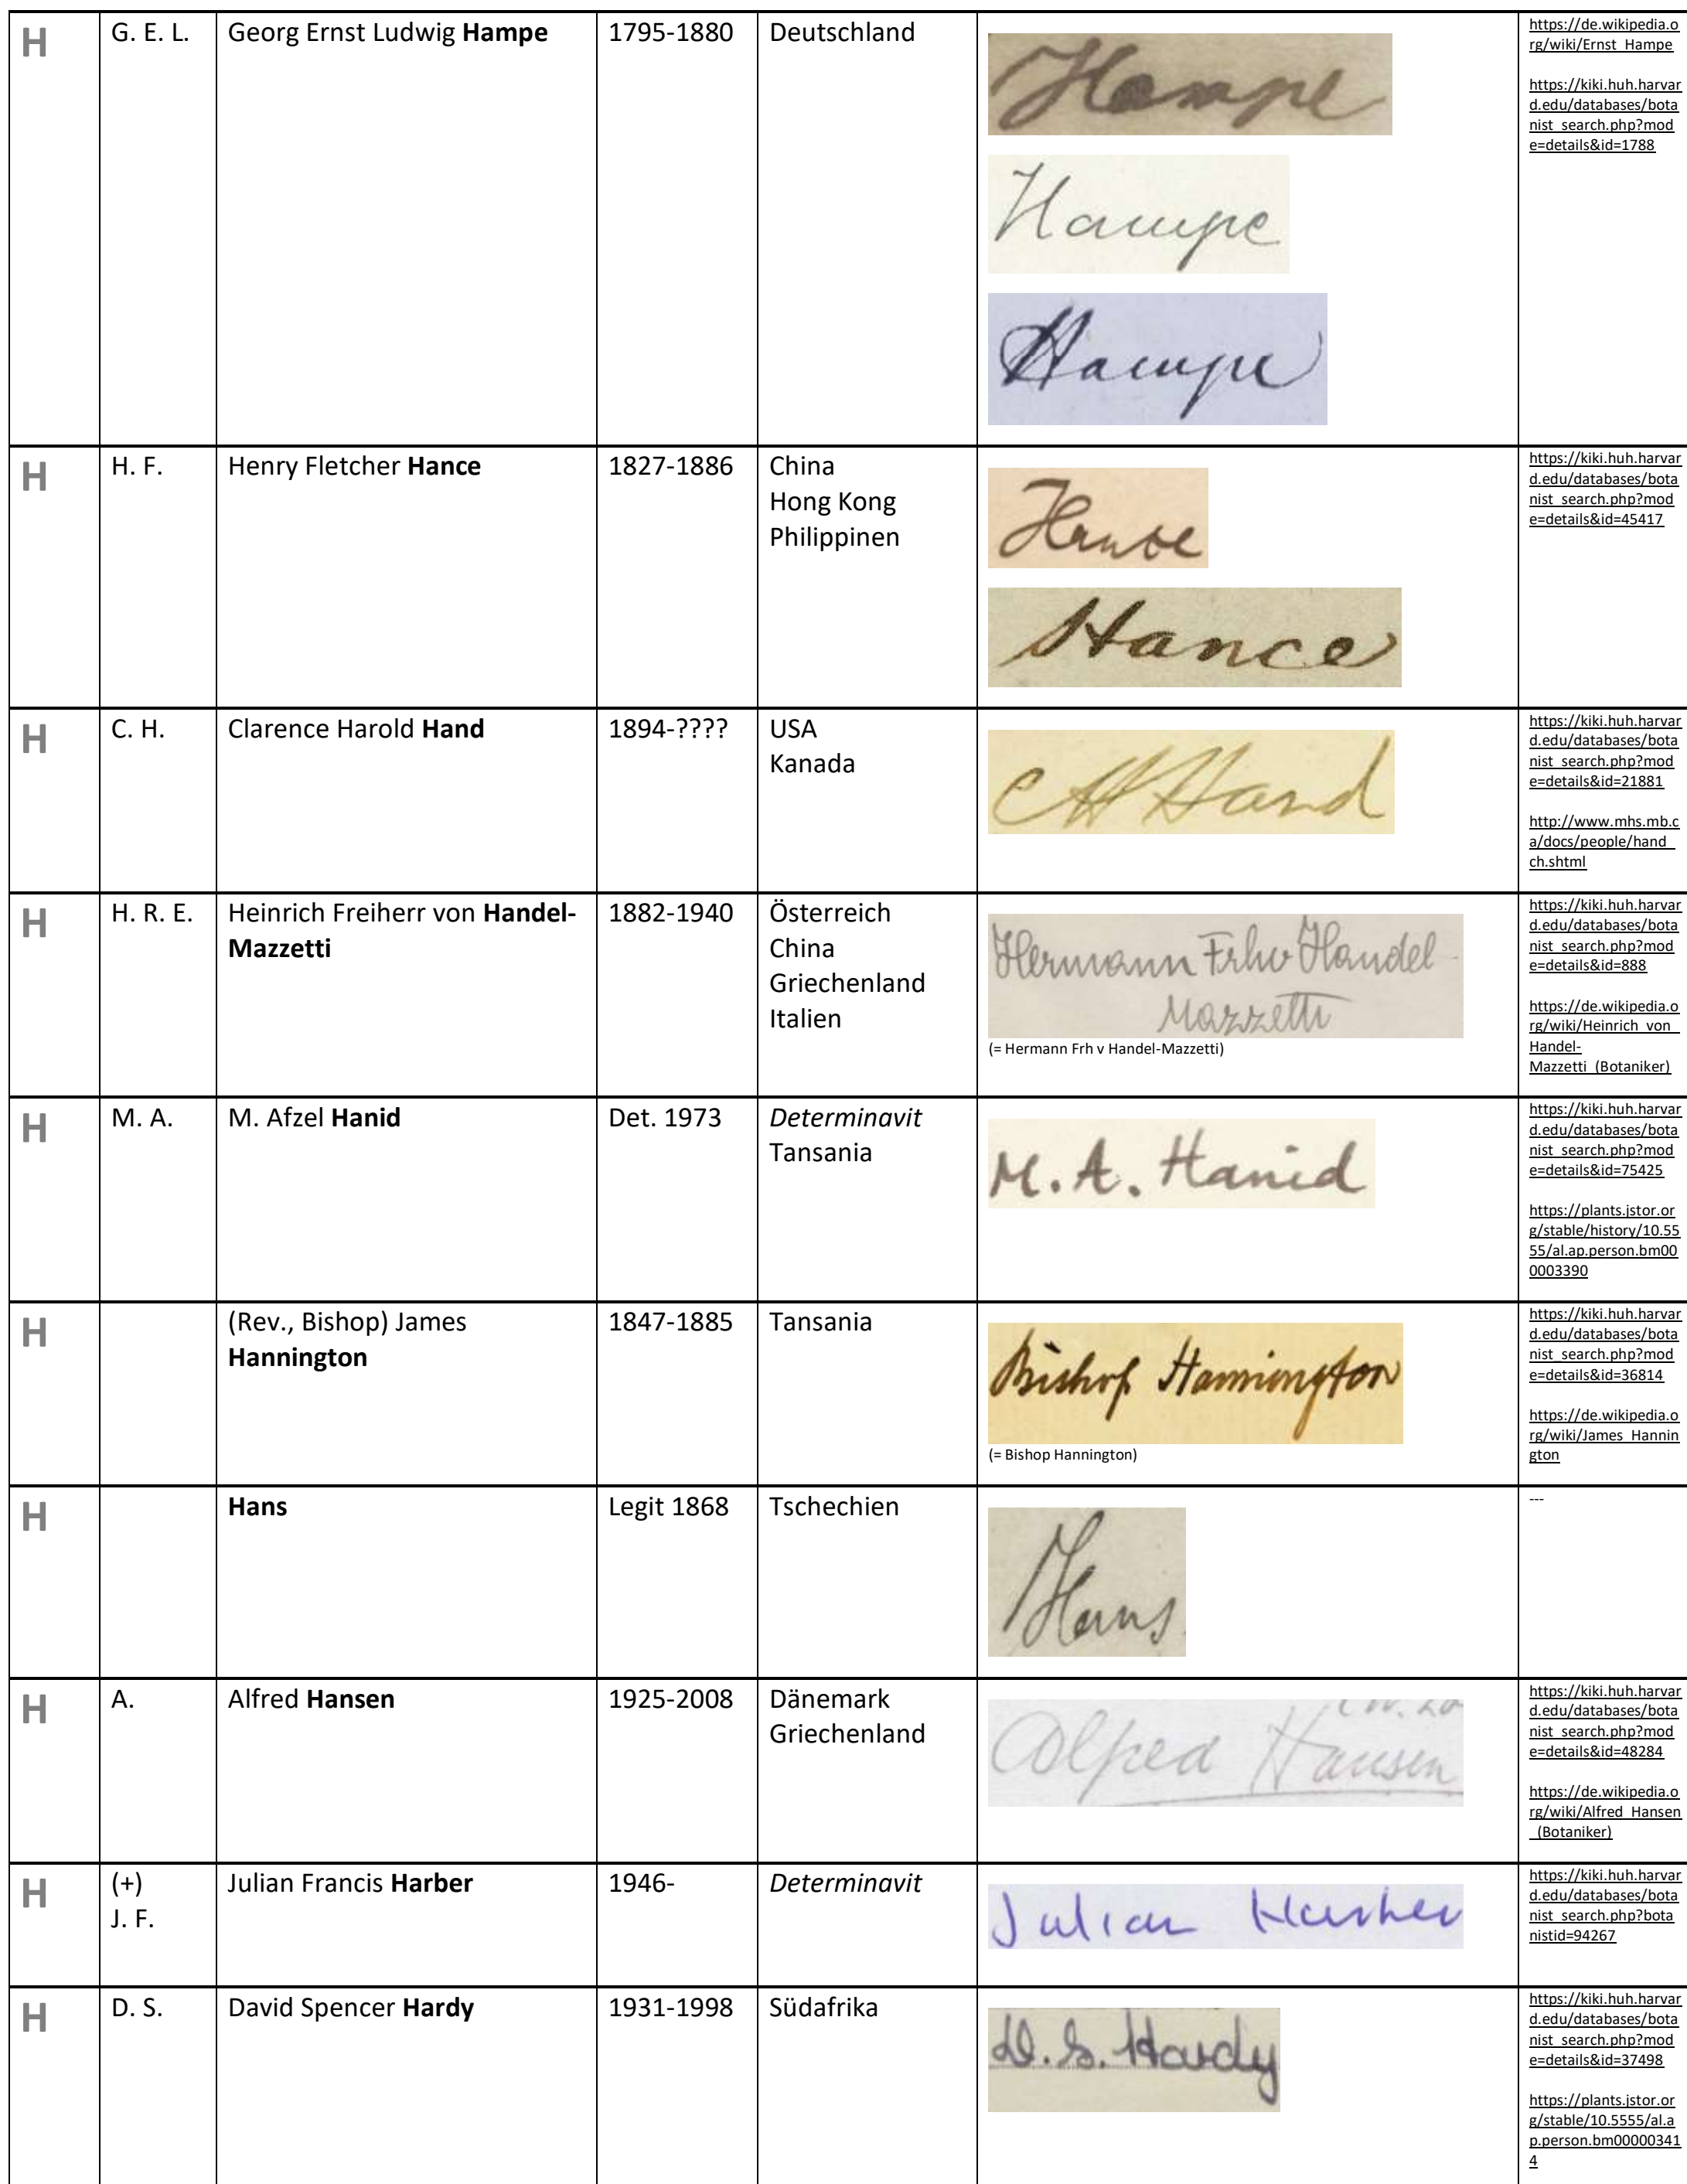 H G. E. L. Georg Ernst Ludwig Hampe 1795-1880 Deutschland
https://de.wikipedia.o
rg/wiki/Ernst_Hampe
https://kiki.huh.harvar
d.edu/databases/bota
nist_search.php?mod
e=details&id=1788
Hampe
Hampe
Hampe
H H. F. Henry Fletcher Hance 1827-1886 China
Hong Kong
Philippinen
Hance
Hance
https://kiki.huh.harvar
d.edu/databases/bota
nist_search.php?mod
e=details&id=45417
H C. H. Clarence Harold Hand 1894-???? USA
Kanada
C H Hand
https://kiki.huh.harvar
d.edu/databases/bota
nist_search.php?mod
e=details&id=21881
http://www.mhs.mb.c
a/docs/people/hand_
ch.shtml
H H. R. E. Heinrich Freiherr von Handel-
Mazzetti
1882-1940
Österreich
China
Griechenland
Italien
Hermann Frhv Handel-
Mazzetti
(= Hermann Frh v Handel-Mazzetti)
https://kiki.huh.harvar
d.edu/databases/bota
nist_search.php?mod
e=details&id=888
https://de.wikipedia.o
rg/wiki/Heinrich_von_
Handel-
Mazzetti_(Botaniker)
H M. A. M. Afzel Hanid Det. 1973 Determinavit
Tansania
M. A. Hanid
https://kiki.huh.harvar
d.edu/databases/bota
nist_search.php?mod
e=details&id=75425
https://plants.jstor.or
g/stable/history/10.55
55/al.ap.person.bm00
0003390
H (Rev., Bishop) James
Hannington
1847-1885 Tansania
Bishop Hannington
(= Bishop Hannington)
https://kiki.huh.harvar
d.edu/databases/bota
nist_search.php?mod
e=details&id=36814
https://de.wikipedia.o
rg/wiki/James_Hannin
gton
H Hans Legit 1868 Tschechien
Hans
---
H A. Alfred Hansen 1925-2008 Dänemark
Griechenland
Alfred Hansen
https://kiki.huh.harvar
d.edu/databases/bota
nist_search.php?mod
e=details&id=48284
https://de.wikipedia.o
rg/wiki/Alfred_Hansen
_(Botaniker)
H (+)
J. F.
Julian Francis Harber 1946- Determinavit
Julian Harber
https://kiki.huh.harvar
d.edu/databases/bota
nist_search.php?bota
nistid=94267
H D. S. David Spencer Hardy 1931-1998 Südafrika
D. S. Hardy
https://kiki.huh.harvar
d.edu/databases/bota
nist_search.php?mod
e=details&id=37498
https://plants.jstor.or
g/stable/10.5555/al.a
p.person.bm00000341
4